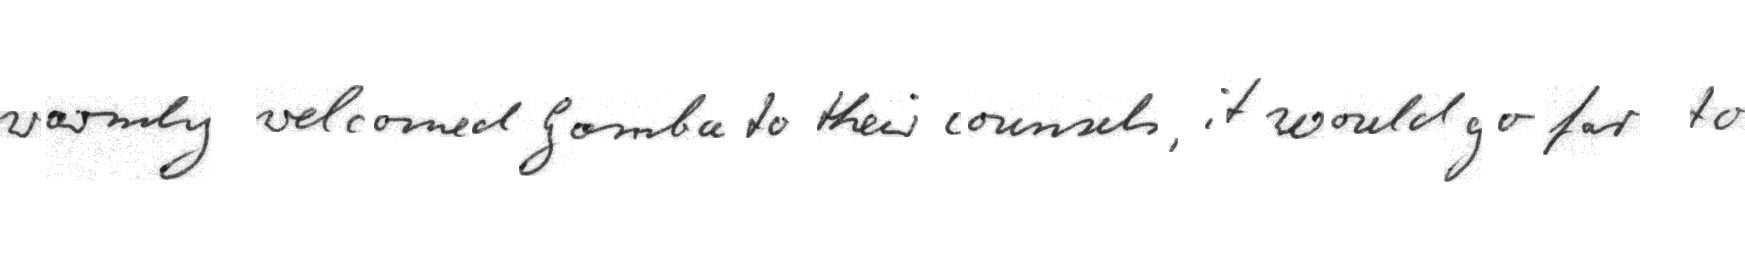 warmly welcomed Gamba to their counsels, it would go far to